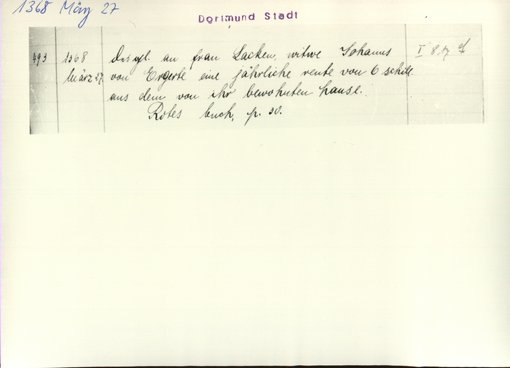 1368 März 27
Dortmund Stadt
493 1368 Dsgl. an frau Lacken, witwe Johanns I 8.7
März 27. von Ergerte eine jährliche rente von 6 schill.
aus dem von ihr bewohnten hause.
Rotes buch, p. 30.